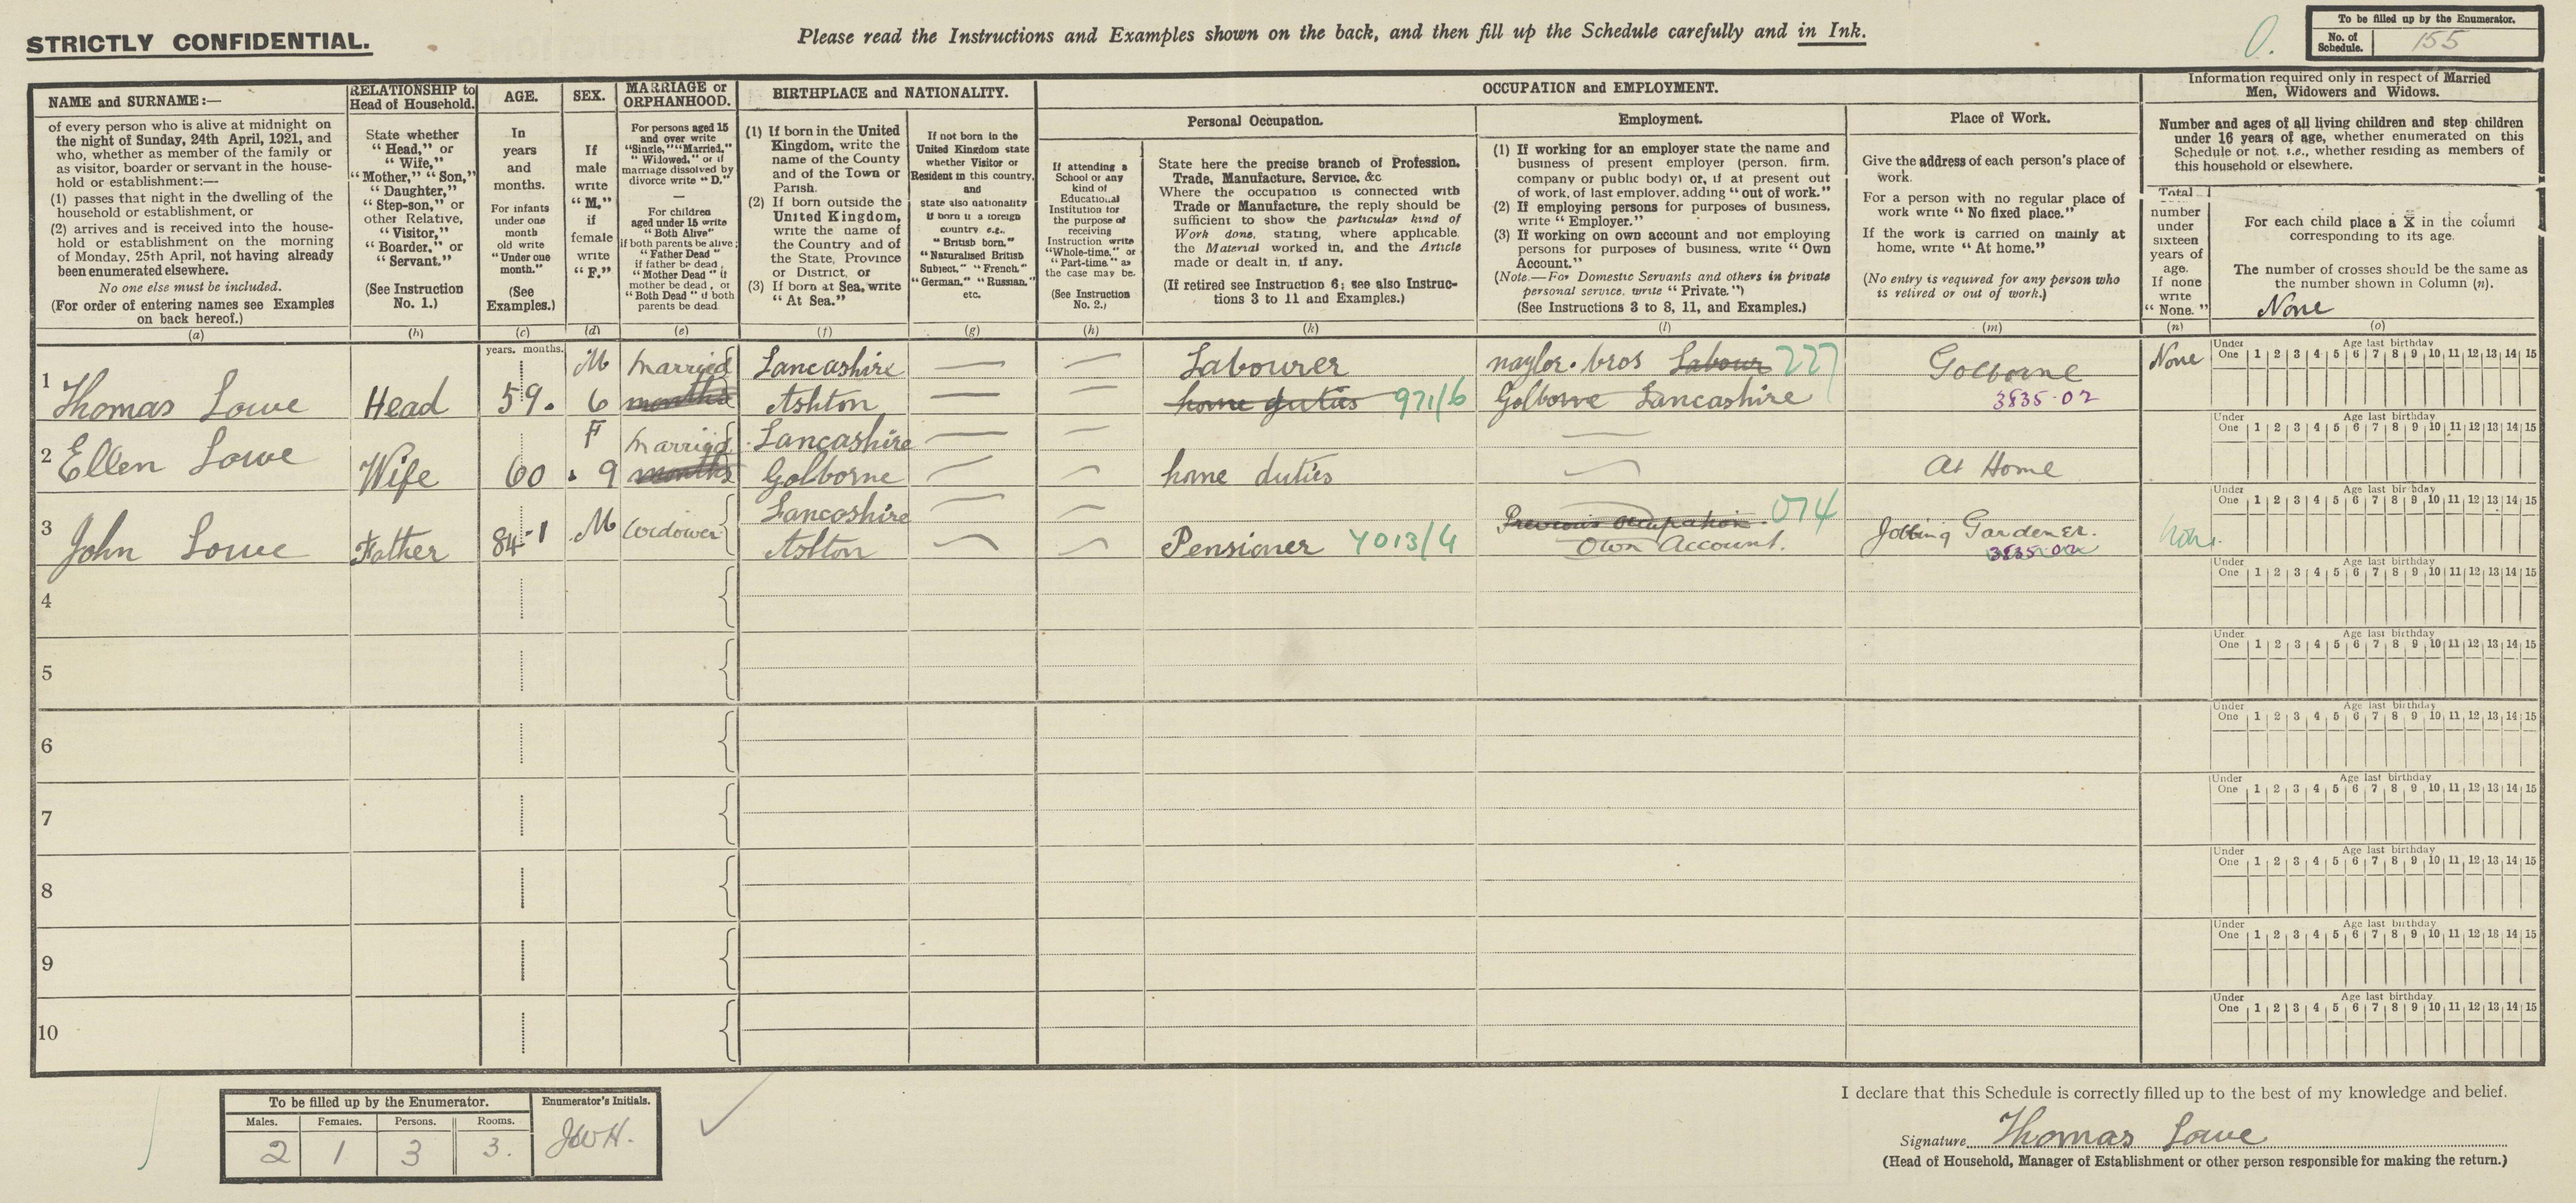 STRICTLY CONFIDENTIAL.
Please read the Instructions and Examples shown on the back, and then fill up the Schedule carefully and in Ink.
0.
To be filled up by the Enumerator.
No. of Schedule.
155
NAME and SURNAME:—
of every person who is alive at midnight on
the night of Sunday, 24th April, 1921, and
who, whether as member of the family or
as visitor, boarder or servant in the house-
hold or establishment:—
(1) passes that night in the dwelling of the
household or establishment, or
(2) arrives and is received into the house-
hold or establishment on the morning
of Monday, 25th April, not having already
been enumerated elsewhere.
No one else must be included.
(For order of entering names see Examples
on back hereof.)
(a)
RELATIONSHIP to
Head of Household.
State whether
"Head," or
"Wife,"
"Mother," "Son,"
"Daughter,"
"Step-son," or
other Relative,
"Visitor,"
"Boarder," or
"Servant."
(See Instruction
No. 1.)
(b)
AGE.
In
years
and
months.
For infants
under one
month
old write
"Under one
month."
(See
Examples.)
(c)
SEX.
If
male
write
"M."
if
female
write
"F."
(d)
MARRIAGE or
ORPHANHOOD.
For persons aged 15
and over write
"Single," "Married,"
"Widowed," or if
marriage dissolved by
divorce write "D."
—
For children
aged under 15 write
"Both Alive"
if both parents be alive;
"Father Dead"
if father be dead,
"Mother Dead" if
mother be dead, or
"Both Dead" if both
parents be dead
(e)
BIRTHPLACE and NATIONALITY.
(1) If born in the United
Kingdom, write the
name of the County
and of the Town or
Parish.
(2) If born outside the
United Kingdom,
write the name of
the Country and of
the State, Province
or District, or
(3) If born at Sea, write
"At Sea."
(f)
If not born in the
United Kingdom state
whether Visitor or
Resident in this country,
and
state also nationality
if born in a foreign
country e.g.,
"British born,"
"Naturalised British
Subject," "French,"
"German," "Russian,"
etc.
(g)
OCCUPATION and EMPLOYMENT.
Personal Occupation.
If attending a
School or any
kind of
Educational
Institution for
the purpose of
receiving
Instruction write
"Whole-time," or
"Part-time" as
the case may be.
(See Instruction
No. 2.)
(h)
State here the precise branch of Profession,
Trade, Manufacture, Service, &c
Where the occupation is connected with
Trade or Manufacture, the reply should be
sufficient to show the particular kind of
Work done, stating, where applicable,
the Material worked in, and the Article
made or dealt in, if any.
(If retired see Instruction 6; see also Instruc-
tions 3 to 11 and Examples.)
(k)
Employment.
(1) If working for an employer state the name and
business of present employer (person, firm,
company or public body) or, if at present out
of work, of last employer, adding "out of work."
(2) If employing persons for purposes of business,
write "Employer."
(3) If working on own account and not employing
persons for purposes of business, write "Own
Account."
(Note.—For Domestic Servants and others in private
personal service, write "Private.")
(See Instructions 3 to 8, 11, and Examples.)
(l)
Place of Work.
Give the address of each person's place of
work.
For a person with no regular place of
work write "No fixed place."
If the work is carried on mainly at
home, write "At home."
(No entry is required for any person who
is retired or out of work.)
(m)
Information required only in respect of Married
Men, Widowers and Widows.
Number and ages of all living children and step children
under 16 years of age, whether enumerated on this
Schedule or not, i.e., whether residing as members of
this household or elsewhere.
Total
number
under
sixteen
years of
age.
If none
write
"None."
(n)
For each child place a X in the column
corresponding to its age.
The number of crosses should be the same as
the number shown in Column (n).
None
(o)
years. months.
Under One
Age last birthday
1 2 3 4 5 6 7 8 9 10 11 12 13 14 15
1 Thomas Lowe Head 59. 6 M Married
months
Lancashire
Ashton
Labourer
home duties 971/6
naylor. bros Labour 227
Golborne Lancashire
Golborne
3835.02
None
Under One
Age last birthday
1 2 3 4 5 6 7 8 9 10 11 12 13 14 15
2 Ellen Lowe Wife 60 . 9 F Married
months
Lancashire
Golborne
home duties
At Home
Under One
Age last birthday
1 2 3 4 5 6 7 8 9 10 11 12 13 14 15
3 John Lowe Father 84-1 M Widower
Lancashire
Ashton
Pensioner 4013/4
Previous Occupation. 074
Own Account.
Jobbing Gardener.
3835.02
Under One
Age last birthday
1 2 3 4 5 6 7 8 9 10 11 12 13 14 15
4
Under One
Age last birthday
1 2 3 4 5 6 7 8 9 10 11 12 13 14 15
5
Under One
Age last birthday
1 2 3 4 5 6 7 8 9 10 11 12 13 14 15
6
Under One
Age last birthday
1 2 3 4 5 6 7 8 9 10 11 12 13 14 15
7
Under One
Age last birthday
1 2 3 4 5 6 7 8 9 10 11 12 13 14 15
8
Under One
Age last birthday
1 2 3 4 5 6 7 8 9 10 11 12 13 14 15
9
Under One
Age last birthday
1 2 3 4 5 6 7 8 9 10 11 12 13 14 15
10
To be filled up by the Enumerator.
Males. Females. Persons. Rooms.
2 1 3 3.
Enumerator's Initials.
JWH.
I declare that this Schedule is correctly filled up to the best of my knowledge and belief.
Signature Thomas Lowe
(Head of Household, Manager of Establishment or other person responsible for making the return.)